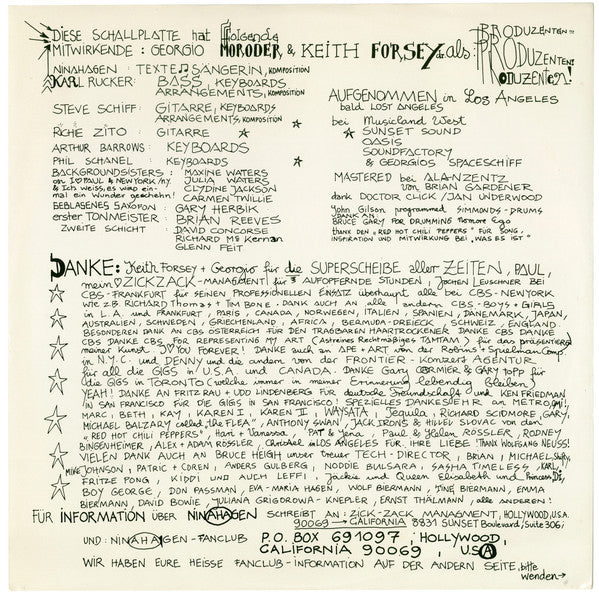 DIESE SCHALLPLATTE hat folgende
MITWIRKENDE : GEORGIO MORODER, & KEITH FORSEY als:
PRODUZENTEN=
PRODUZENTEN!
PRODUZENTEN!
NINAHAGEN : TEXTE SÄNGERIN, KOMPOSITION
KARL RUCKER: BASS, KEYBOARDS
ARRANGEMENTS, KOMPOSITION
STEVE SCHIFF: GITARRE, KEYBOARDS
ARRANGEMENTS, KOMPOSITION
RICHE ZITO : GITARRE
ARTHUR BARROWS: KEYBOARDS
PHIL SCHANEL : KEYBOARDS
BACKGROUNDSISTERS : MAXINE WATERS
on I ♡ PAUL & NEW YORK / NY JULIA WATERS
& Ich weiss, es wird ein= CLYDINE JACKSON
mal ein Wunder geschehn! CARMEN TWILLIE
BEBLASENES SAXOFON : GARY HERBIK
erster TONMEISTER : BRIAN REEVES
ZWEITE SCHICHT : DAVID CONCORSE
RICHARD McKernan
GLENN FEIT
AUFGENOMMEN in LOS ANGELES
bald LOST ANGELES
bei Musicland West
SUNSET SOUND
OASIS
SOUNDFACTORY
& GEORGIOS SPACESCHIFF
MASTERED bei ALANZENTZ
von BRIAN GARDENER
dank DOCTOR CLICK / JAN UNDERWOOD
John Gilson programmed SIMMONDS-DRUMS
DANK AN:
BRUCE GARY FOR DRUMMING Romore Ego
THANK DEN „RED HOT CHILI PEPPERS" FÜR SONG,
INSPIRATION UND MITWIRKUNG BEI „WAS ES IST"
DANKE: Keith Forsey + Georgio für die SUPERSCHEIBE aller ZEITEN, PAUL,
mein ♡ ZICKZACK-MANAGEMENT für AUFOPFERNDE STUNDEN, JOCHEN LEUSCHNER BEI
CBS-FRANKFURT FÜR SEINEN PROFESSIONELLEN EINSATZ überhaupt alle bei CBS-NEW YORK
wie z.B. RICHARD Thomas + TIM BONE. DANK auch AN alle anderen CBS-BOYS+GIRLS
in L.A. und FRANKFURT, PARIS, CANADA, NORWEGEN, ITALIEN, SPANIEN, DÄNEMARK, JAPAN,
AUSTRALIEN, SCHWEDEN, GRIECHENLAND, AFRICA, BERMUDA-DREIECK, SCHWEIZ, ENGLAND.
BESONDEREN DANK AN CBS ÖSTERREICH FÜR DEN TRAGBAREN HAARTROCKENER. DANKE CBS DANKE
CBS DANKE CBS FOR REPRESENTING MY ART (Astreines Rechtmäßiges TAMTAM) für das präsentieren
meiner Kunst I ♡ YOU FOREVER! DANKE auch an APE + ART von der Robins + Spielman Comp.
in N.Y.C. und DENNY und die anderen von der FRONTIER-Konzert AGENTUR
für all die GIGS in U.S.A und CANADA. DANKE Gary CORMIER & GARY TOPP für
die GIGS in TORONTO (welche immer in meiner Erinnerung lebendig bleiben)
YEAH! DANKE AN FRITZ RAU + UDO LINDENBERG FÜR deutsche Freundschaft und KEN FRIEDMAN
IN SAN FRANCISCO FÜR DIE GIGS IN SAN FRANCISCO! SPEZIELLES DANKESEHR an METRO,
MARC, BETH, KAY, KAREN I, KAREN II, WAYSATA, Tequila, RICHARD SCIDMORE, GARY,
MICHAEL BALZARY called „the FLEA", ANTHONY SWAN, JACK IRONS & HILLEL SLOVAC von den
„RED HOT CHILI PEPPERS", Hart + Vanessa, Pat & Yena, Paul & Helen RÖSSLER, RODNEY
BINGENHEIMER, ALEX + ADAM RÖSSLER, Christine in LOS ANGELES FÜR IHRE LIEBE! THANK WOLFGANG NEUSS!
VIELEN DANK AUCH AN BRUCE HEIGH unser treuer TECH-DIRECTOR, BRIAN, MICHAEL
MIKE JOHNSON, PATRIC + COREN, ANDERS GULBERG, NODDIE BULSARA, SASHA TIMELESS, KARL,
FRITZE PONG, KIDDI und AUCH LEFFI, Jackie und Queen Elisabeth und Princess DI,
BOY GEORGE, DON PASSMAN, EVA-MARIA HAGEN, WOLF BIERMANN, TINE BIERMANN, EMMA
BIERMANN, DAVID BOWIE, YULIANA GRIGOROWA-KNEPLER, ERNST THÄLMANN, alle anderen!
FÜR INFORMATION ÜBER NINAHAGEN SCHREIBT AN: ZICK-ZACK MANAGMENT, HOLLYWOOD, U.S.A.
90069 → CALIFORNIA 8831 SUNSET Boulevard, SUITE 306;
UND: NINAHAGEN-FANCLUB P.O. BOX 691097, HOLLYWOOD,
CALIFORNIA 90069, USA
WIR HABEN EURE HEISSE FANCLUB-INFORMATION AUF DER ANDERN SEITE, bitte
wenden→